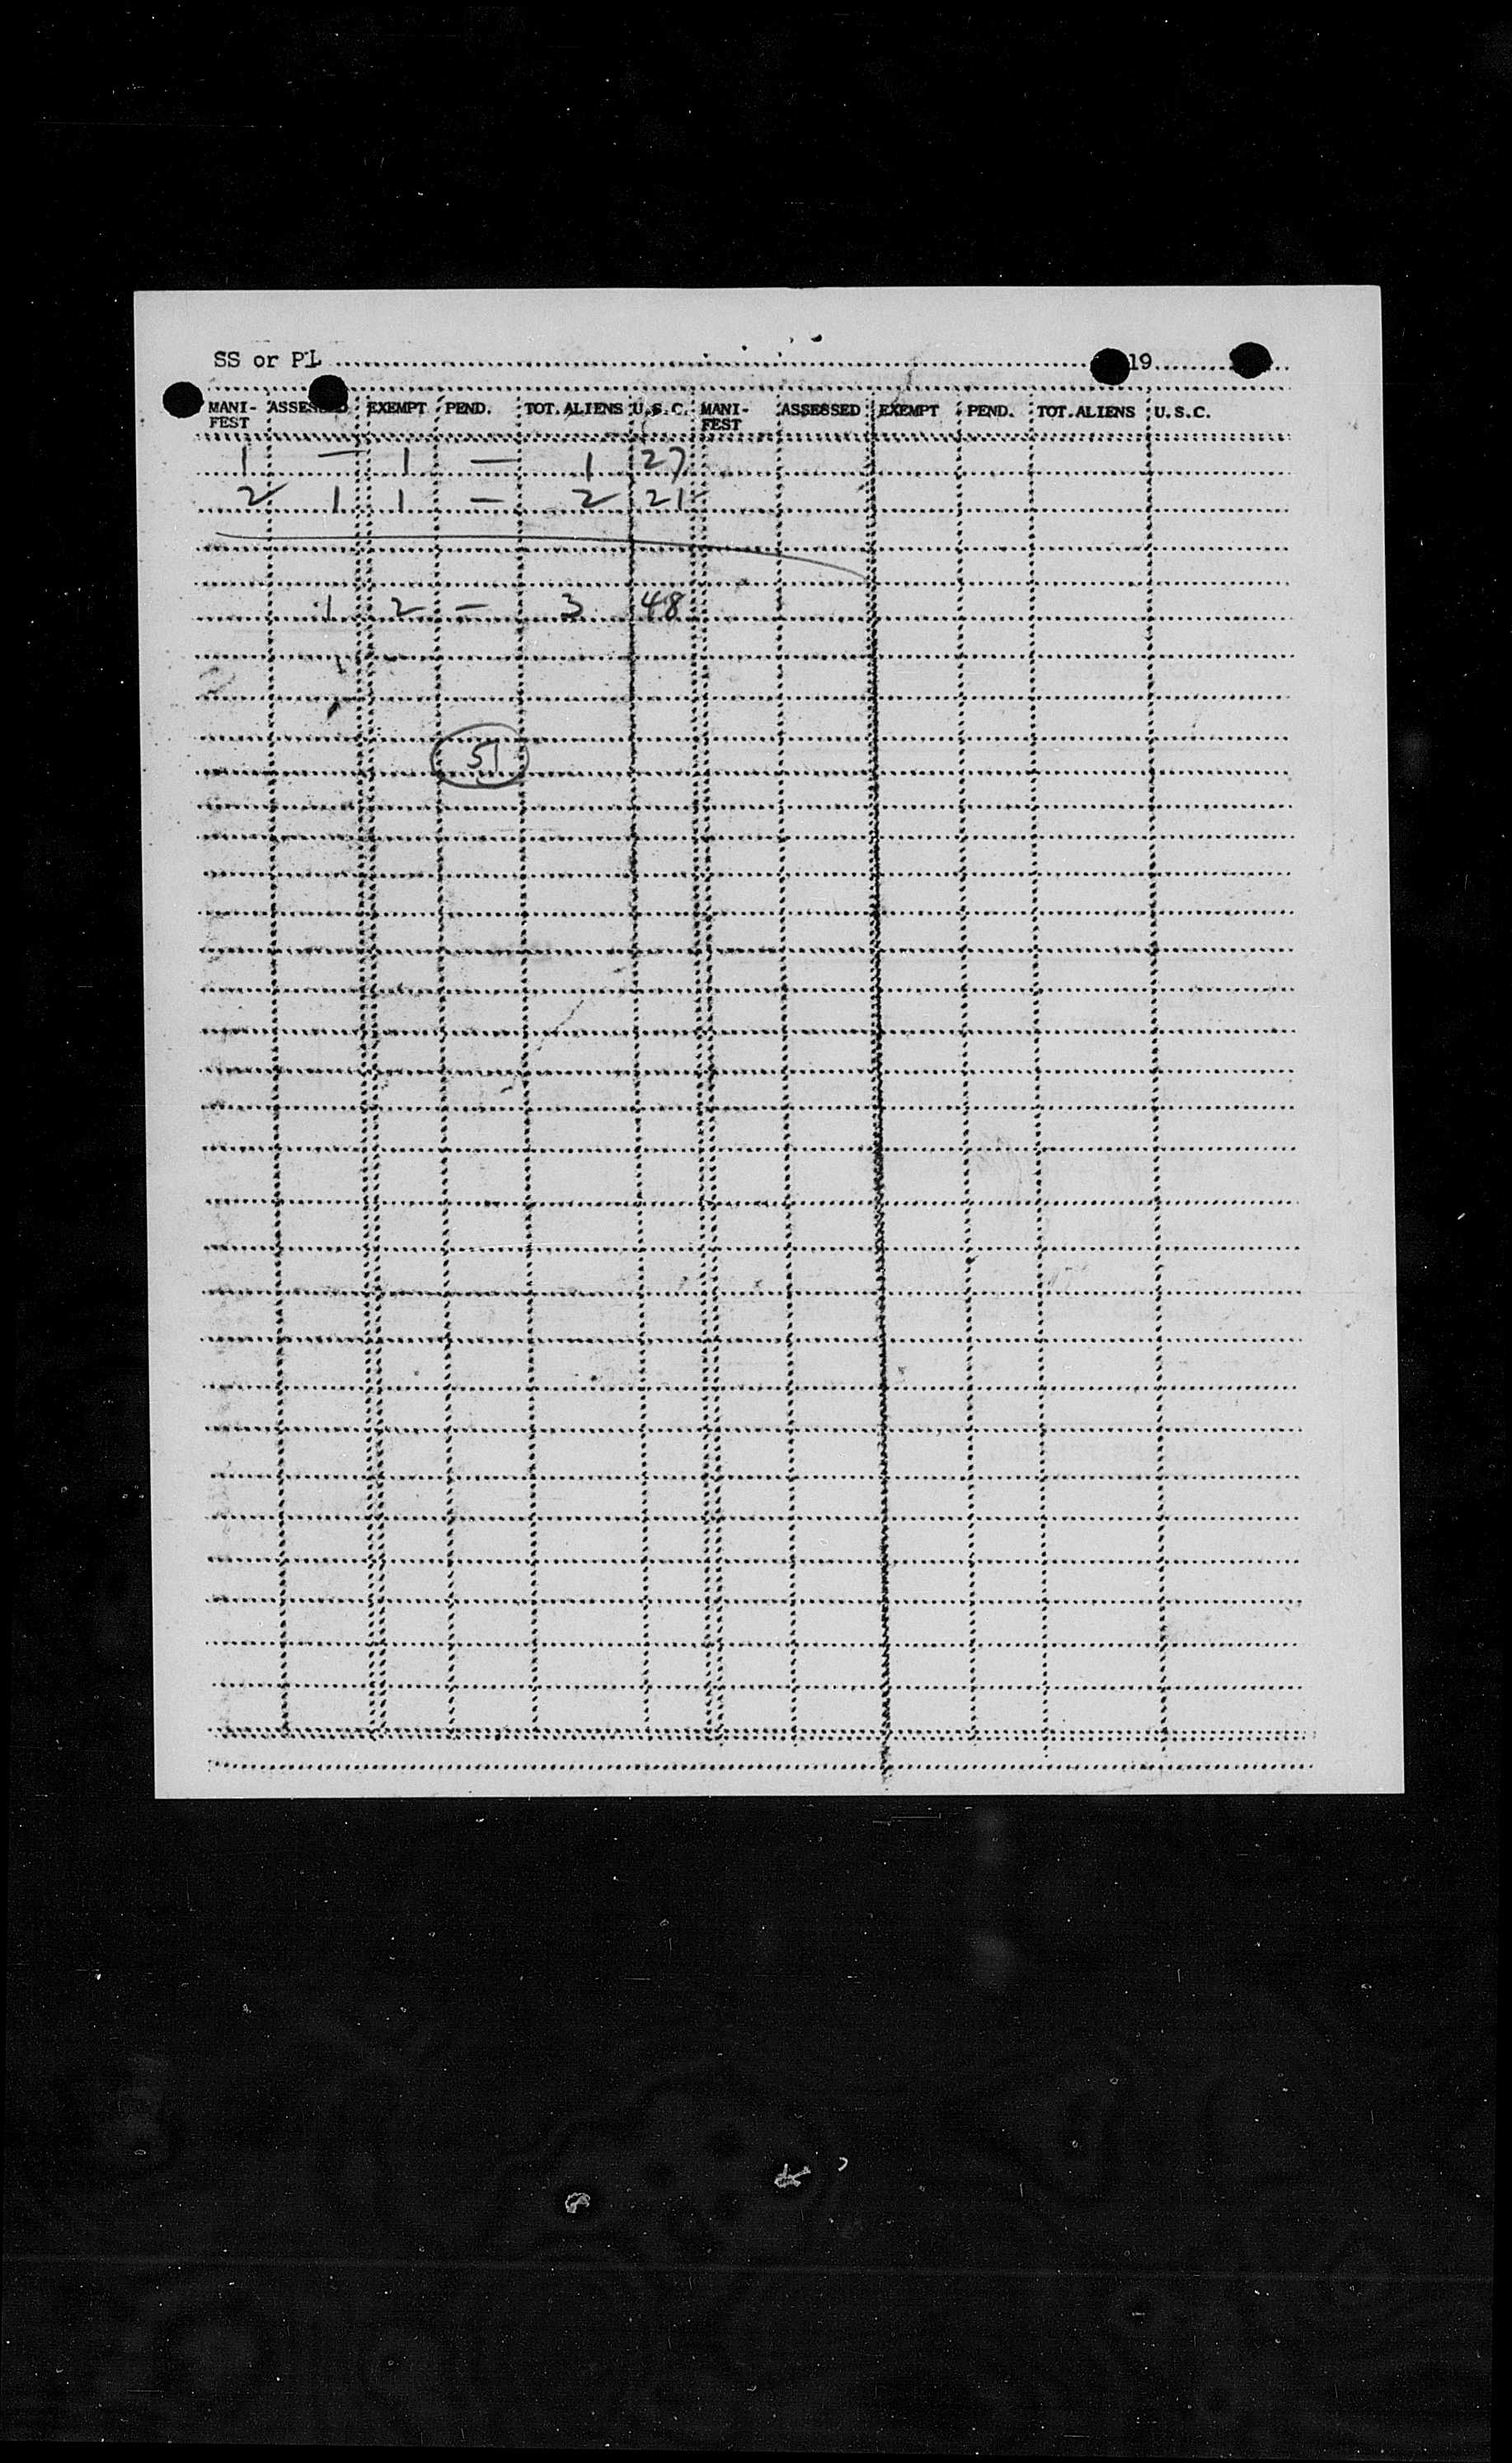 SS or PL 19
MANI- ASSESSED EXEMPT PEND. TOT.ALIENS U.S.C. MANI- ASSESSED EXEMPT PEND. TOT.ALIENS U.S.C.
FEST FEST
1 — 1 — 1 27
2 1 1 — 2 21
1 2 — 3 48
51